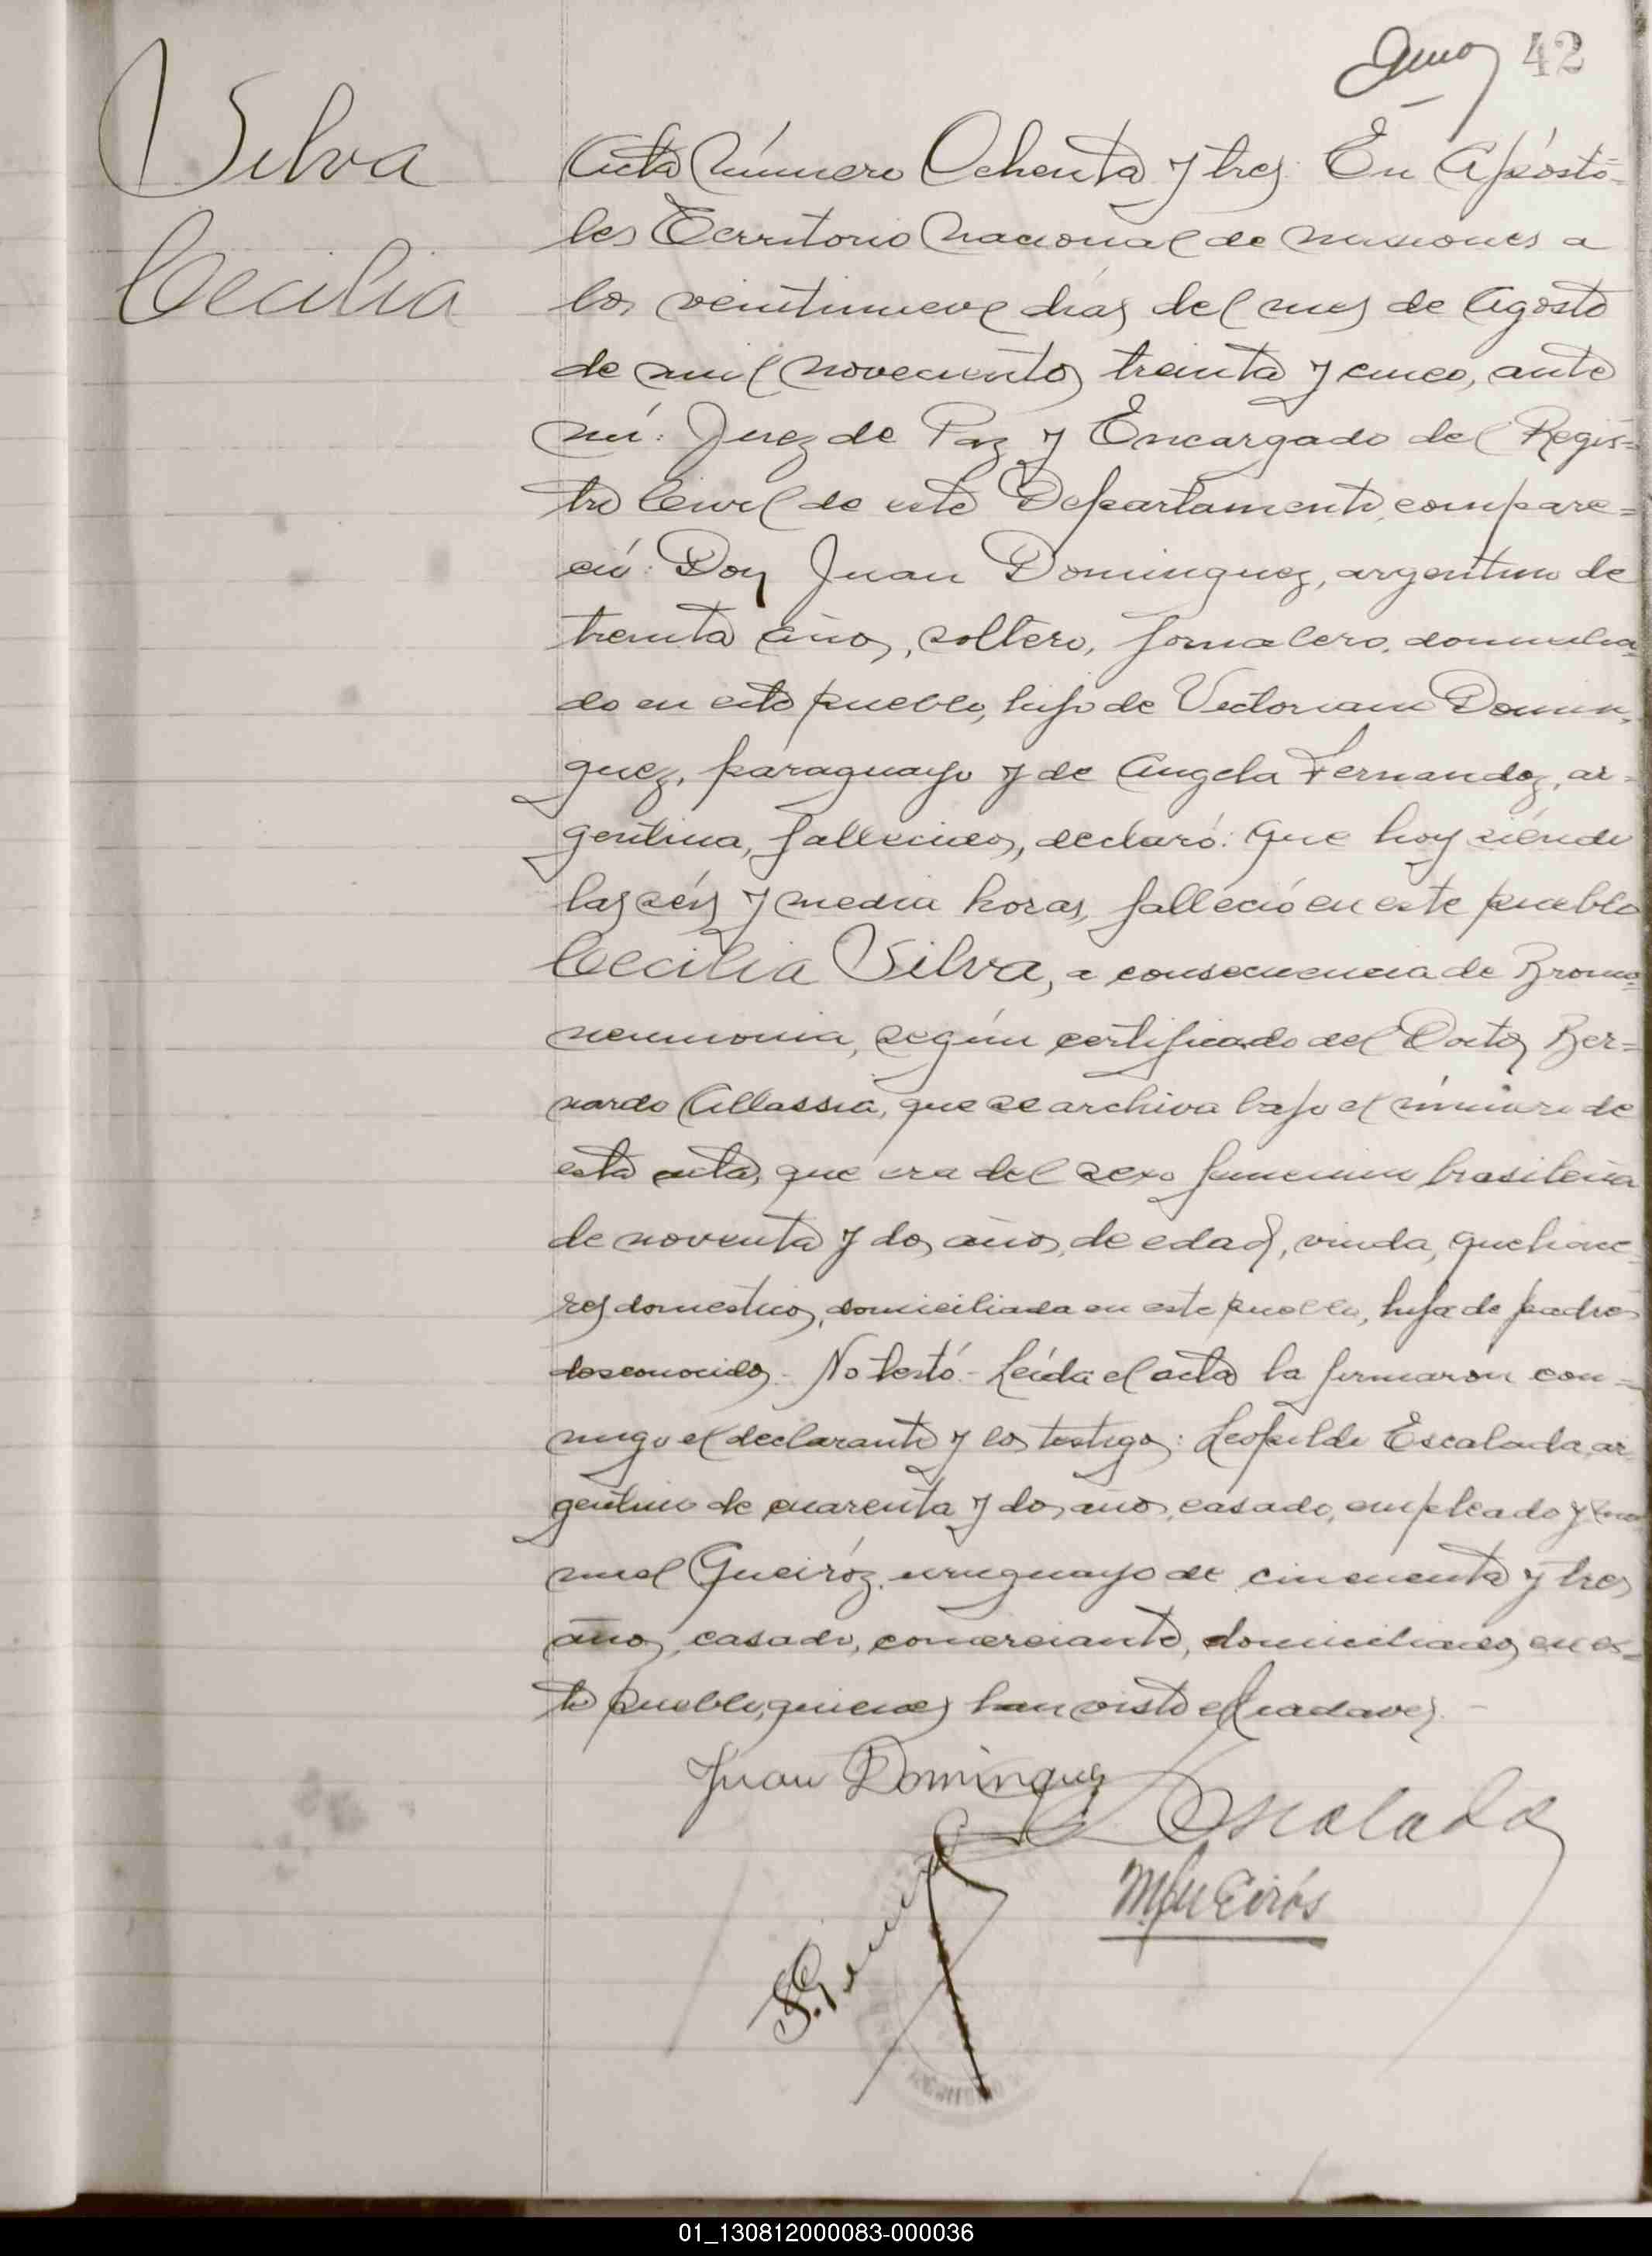 42
Silva
Cecilia
Acta Número Ochenta y tres. En Apósto-
les Territorio Nacional de Misiones a
los veintinueve días del mes de Agosto
de mil novecientos treinta y cinco, ante
mí: Juez de Paz y Encargado del Regis-
tro Civil de este Departamento, compare-
ció: Don Juan Dominguez, argentino de
treinta años, soltero, jornalero, domicilia-
do en este pueblo, hijo de Victoriano Domin-
guez, paraguayo y de Angela Fernandez, ar-
gentina, fallecidos, declaró: Que hoy siendo
las séis y media horas, falleció en este pueblo
Cecilia Silva, a consecuencia de Bronco-
neumonia, según certificado del Doctor Ber-
nardo Allassia, que se archiva bajo el número de
esta acta, que era del sexo femenino brasileña
de noventa y dos años, de edad, viuda, quehace-
res domesticos, domiciliada en este pueblo, hija de padres
desconocidos. - No testó. - Leída el acta la firmaron con-
migo el declarante y los testigos: Leopoldo Escalada, ar-
gentino de cuarenta y dos años, casado, empleado y Ma-
nuel Queiróz, uruguayo de cincuenta y tres
años, casado, comerciante, domiciliados en es-
te pueblo, quienes han visto el cadaver. -
Juan Dominguez
L Escalada
MQueirós
01_130812000083-000036